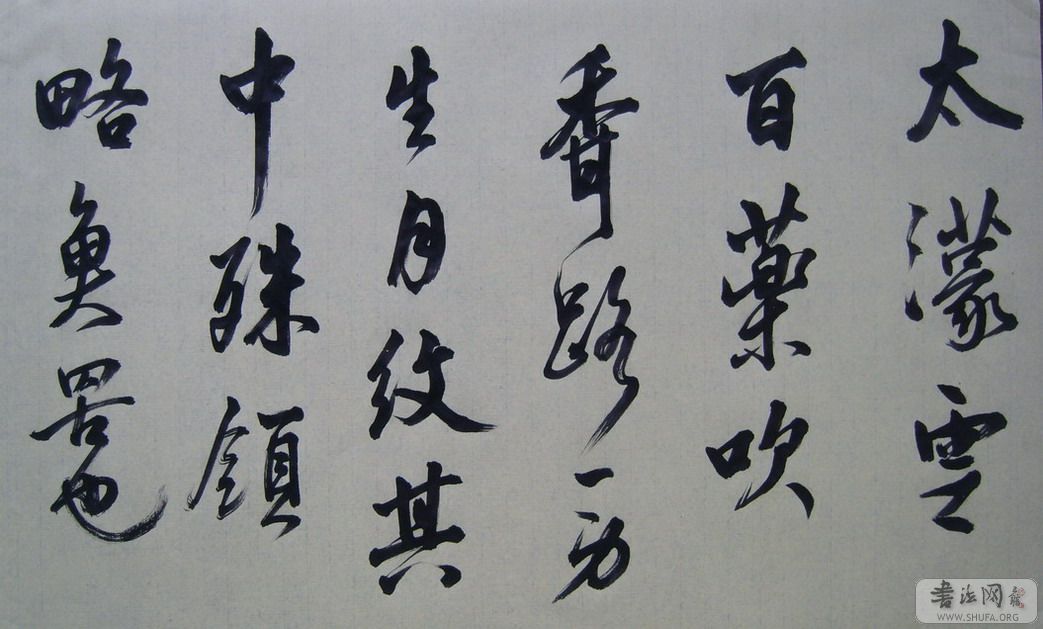 太濛雲
百藥吹
香路一方
生月紋其
中殊領
略魚罟也
書法网
WWW.SHUFA.ORG